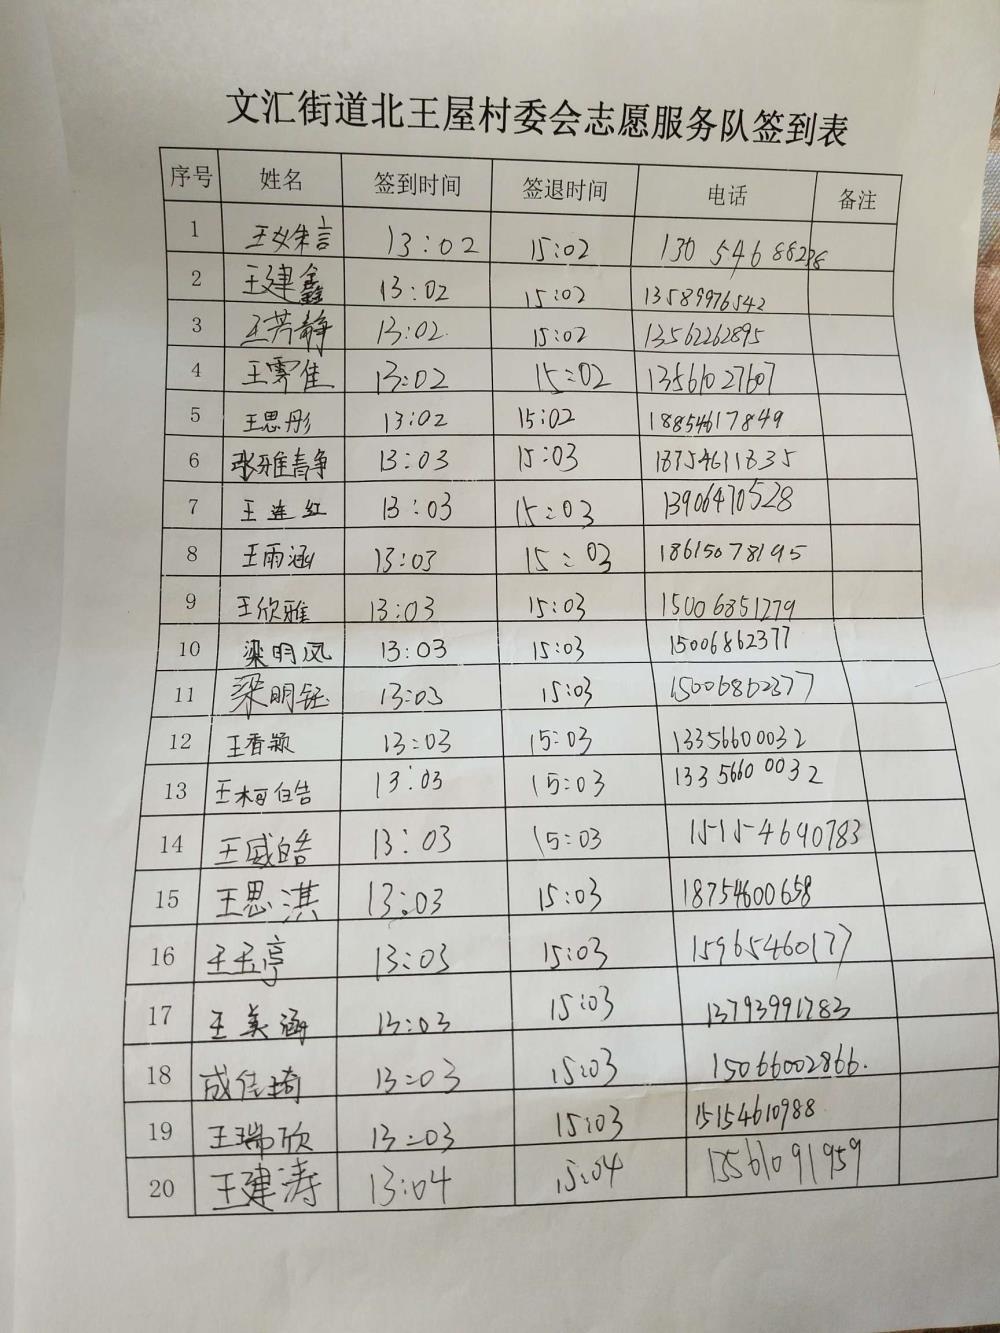 文汇街道北王屋村委会志愿服务队签到表
序号 姓名 签到时间 签退时间 电话 备注
1 13:02 15:02 130 546 88238
2 王建鑫 13:02 15:02 13589976542
3 王芳静 13:02 15:02 13562262895
4 王霁佳 13:02 15:02 13561027607
5 王思彤 13:02 15:02 18854617849
6 张雅静 13:03 15:03 18754611835
7 王连红 13:03 15:03 13906470528
8 王雨涵 13:03 15:03 18615078195
9 王欣雅 13:03 15:03 15006851279
10 梁明凤 13:03 15:03 15006862377
11 梁明钰 13:03 15:03 15006862377
12 王香颖 13:03 15:03 13356600032
13 王柯皓 13:03 15:03 13356600032
14 王威皓 13:03 15:03 15154640783
15 王思淇 13:03 15:03 18754600658
16 王玉亭 13:03 15:03 15965460177
17 王美涵 13:03 15:03 13793991783
18 成佳琦 13:03 15:03 15066002866.
19 王瑞欣 13:03 15:03 15154610988
20 王建涛 13:04 15:04 13561091959